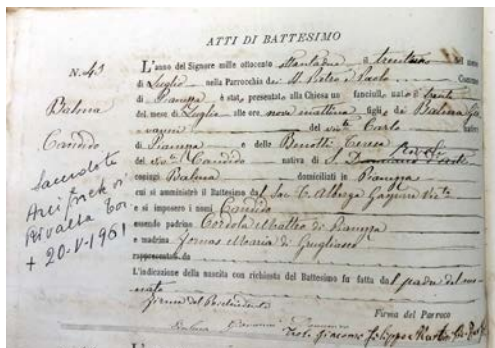 ATTI DI BATTESIMO
N. 43
Balma
Candido
Sacerdote
Arciprete di
Rivalta Tor.
+ 20-V-1961
L'anno del Signore mille ottocento ottantadue a trentuno del mese
di Luglio nella Parrocchia de SS. Pietro e Paolo Comune
di Pianezza è stato presentato alla Chiesa un fanciullo nato il trenta
del mese di Luglio alle ore nove mattina figlio di Balma Gio
vanni del viv.te Carlo nativo
di Pianezza e della Benotti Teresa
del viv.te Candido nativa di S.
coniugi Balma domiciliati in Pianezza
cui si amministrò il Battesimo dal Sac. T. Gaspare
e si imposero i nomi Candido
essendo padrino Matteo di Pianezza
e madrina Maria di Grugliasco
rappresentati da
L'indicazione della nascita con richiesta del Battesimo fu fatta dal padre del neo
nato
Firma del Richiedente
Firma del Parroco
Balma Giovanni Teol. Giacomo Filippo